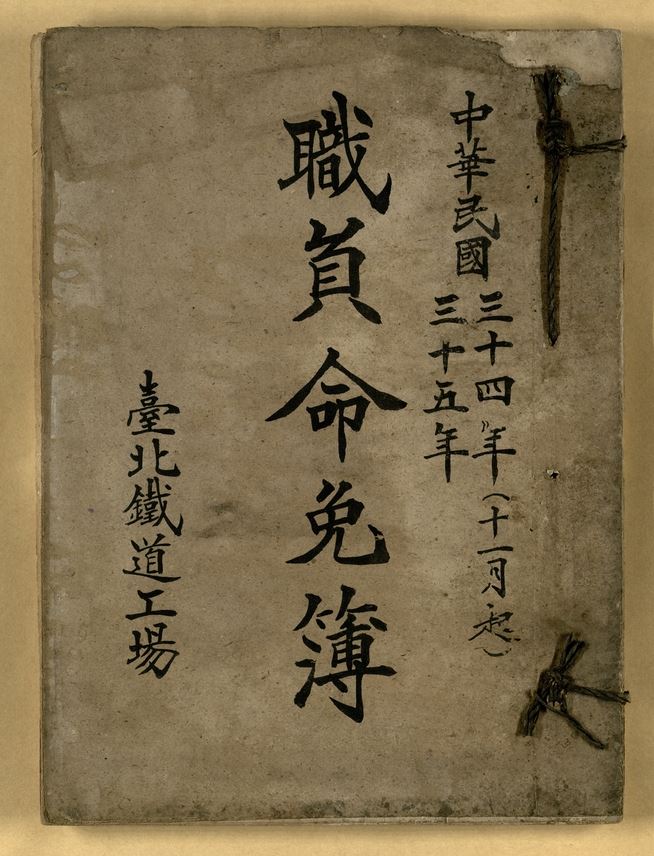 中華民國
三十四年（十一月起）
三十五年
職員命免簿
臺北鐵道工場